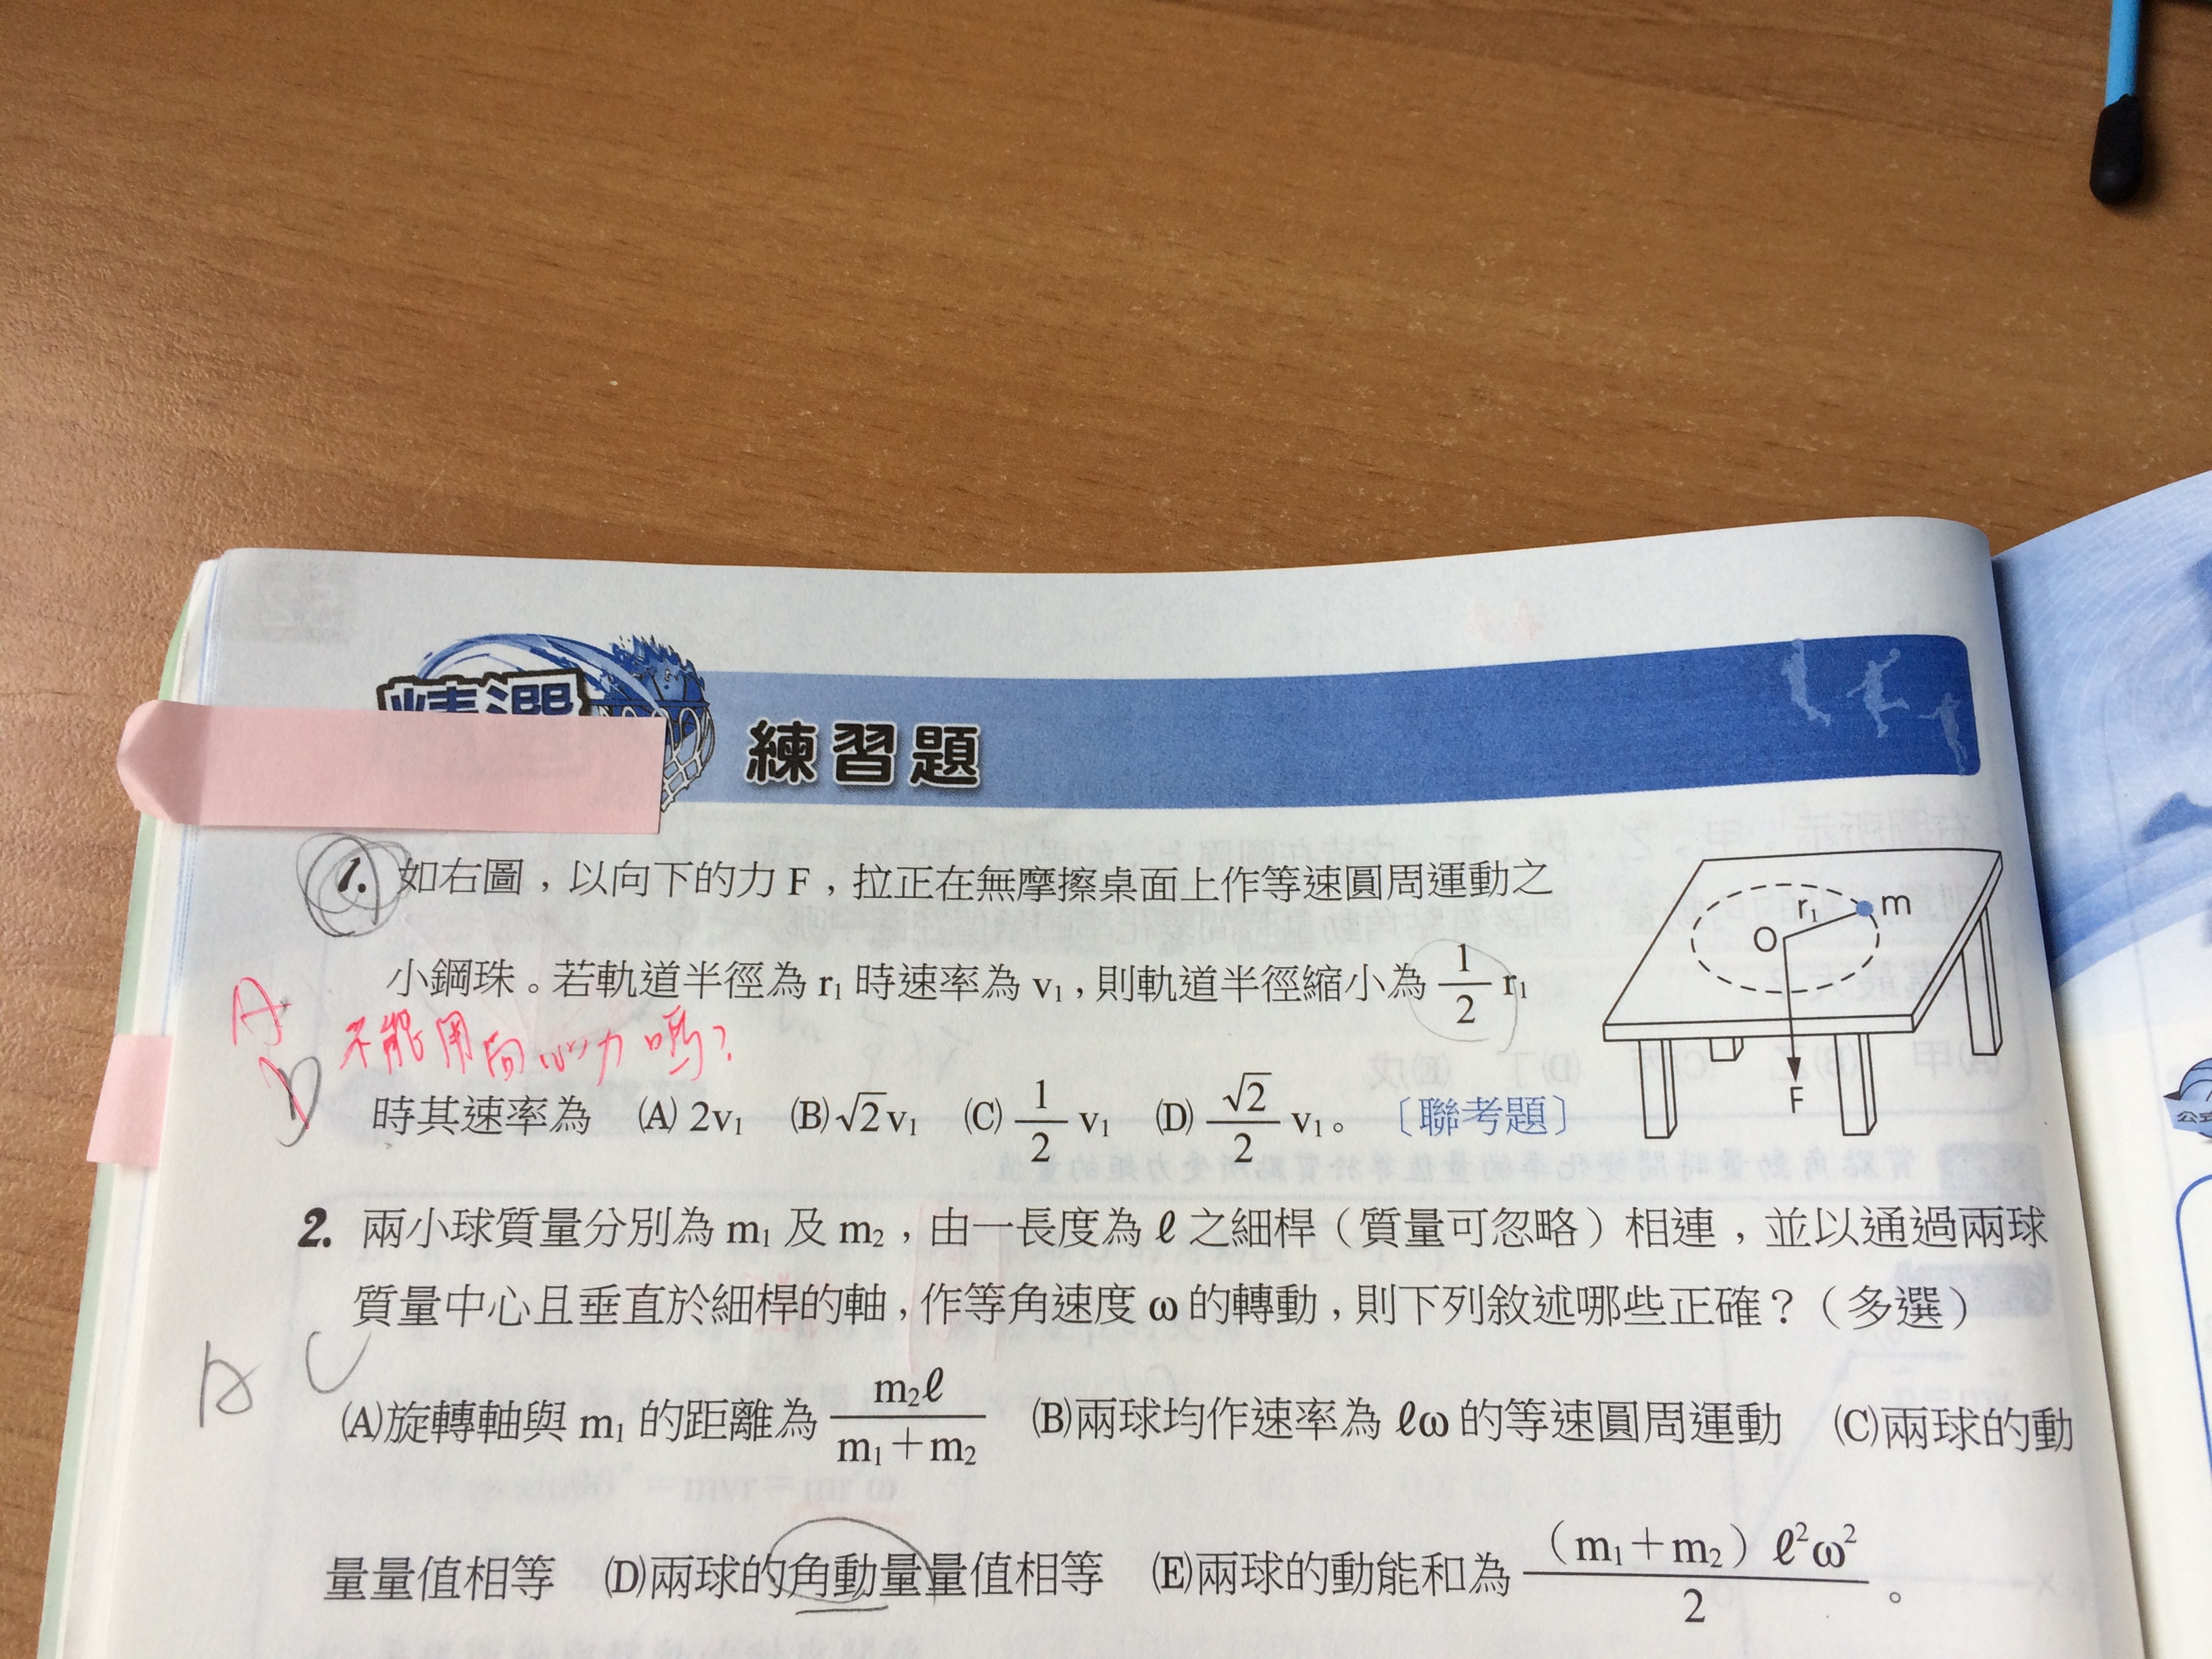 精選
練習題
1. 如右圖，以向下的力 F，拉正在無摩擦桌面上作等速圓周運動之
小鋼珠。若軌道半徑為 r₁ 時速率為 v₁，則軌道半徑縮小為 1/2 r₁
A 不能用向心力嗎?
D
時其速率為 (A) 2v₁ (B) √2 v₁ (C) 1/2 v₁ (D) √2/2 v₁。〔聯考題〕
r₁ m
O
F
2. 兩小球質量分別為 m₁ 及 m₂，由一長度為 ℓ 之細桿（質量可忽略）相連，並以通過兩球
質量中心且垂直於細桿的軸，作等角速度 ω 的轉動，則下列敘述哪些正確？（多選）
(A)旋轉軸與 m₁ 的距離為 m₂ℓ/(m₁＋m₂) (B)兩球均作速率為 ℓω 的等速圓周運動 (C)兩球的動
量量值相等 (D)兩球的角動量量值相等 (E)兩球的動能和為 （m₁＋m₂）ℓ²ω²/2。